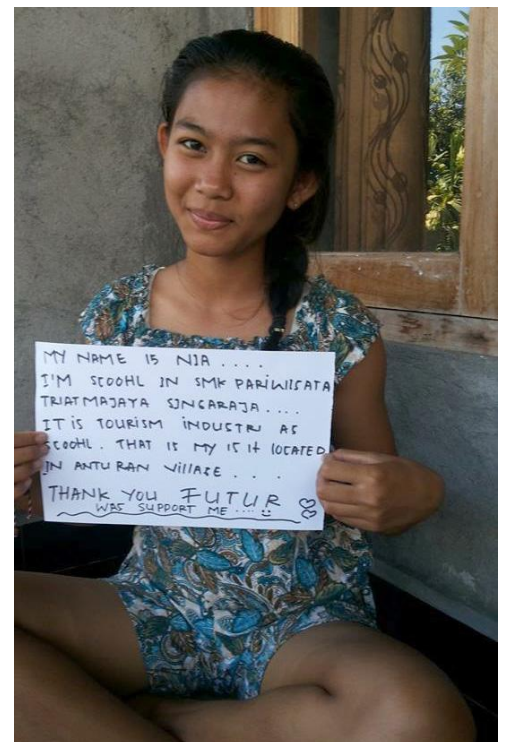 MY NAME IS NIA . . . .
I'M SCOOHL IN SMK PARIWISATA
TRIATMAJAYA SINGARAJA . . . .
IT IS TOURISM INDUSTRI AS
SCOOHL . THAT IS MY IS IT LOCATED
IN ANTURAN VILLAGE . . . .
THANK YOU FUTUR
WAS SUPPORT ME ....